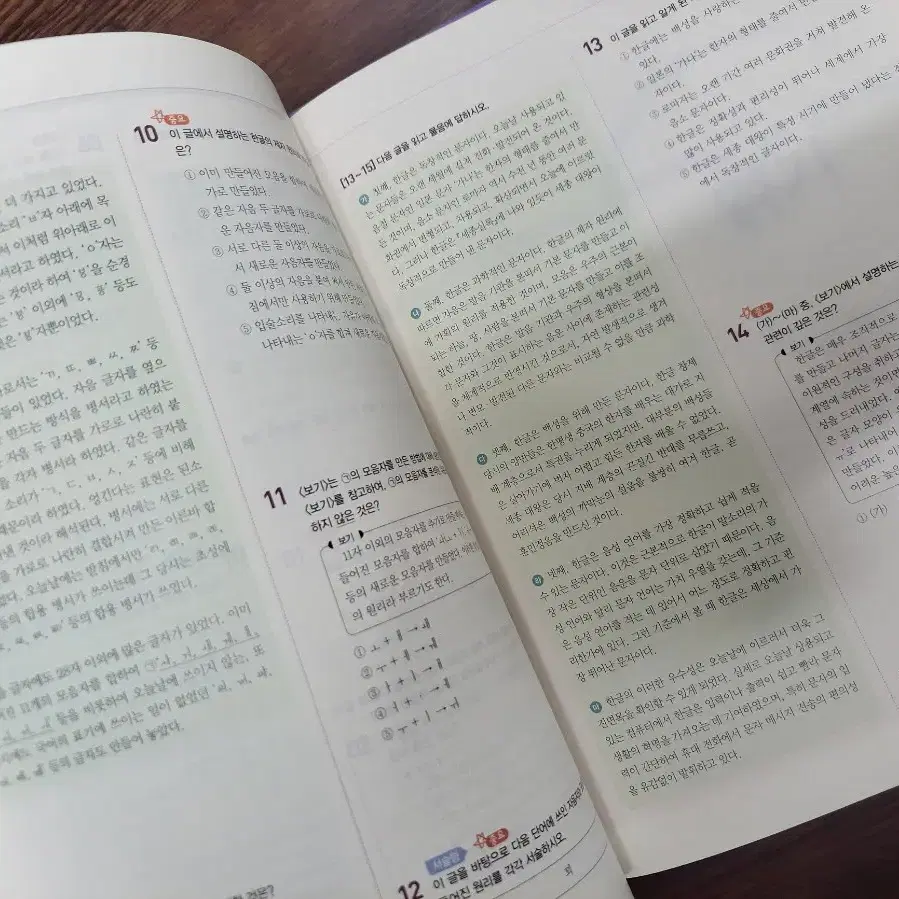 더 가지고 있었다.
자 아래에 목
서 이처럼 위아래로 이
서라고 하였다. 'ㅇ'자는
는 것이라 하여 'ㅸ'을 순경
는 'ㅸ' 이외에
은 'ㅸ'자뿐이었다.
로서는 'ㄲ, ㄸ, ㅃ, ㅆ, ㅉ' 등
들이 있었다. 자음 글자를 옆으
만드는 방식을 병서라고 하였는
자음 두 글자를 가로로 나란히 붙
를 각자 병서라 하였다. 같은 글자를
소리가 등에 비해
때문이라 하였다. 엉긴다는 표현은 된소
낸 것이라 해석된다. 병서에는 서로 다른
를 가로로 나란히 결합시켜 만든 이른바 합
었다. 오늘날에는 받침에서만
등의 합용 병서가 쓰이는데 그 당시는 초성에
등의 합용 병서가 쓰였다.
글자에도 28자 이외에 많은 글자가 있었다. 이미
등을 비롯하여 오늘날에 쓰이지 않는, 또
에는 국어의 표기에 쓰이는 일이 없었던
등의 글자도 만들어 놓았다.
중요
10 이 글에서 설명하는 한글의
은?
① 이미 만들어진 모음을 합하여,
가로 만들었다.
② 같은 자음 두 글자를 가로로
은 자음자를 만들었다.
③ 서로 다른 둘 이상의 자음을
서 새로운 자음자를 만들었다.
④ 둘 이상의 자음을
침에서만 사용하기 위해
⑤ 입술소리를 나타내는
나타내는 'ㅇ'자를 합쳐 새로운
11 <보기>는 ㉠의 모음자를 만든 방법에
<보기>를 참고하여, ㉠의 모음자를
하지 않은 것은?
보기
11자 이외의 모음자를 추가로
들어진 모음자를 합하여
등의 새로운 모음자를 만들었다.
의 원리라 부르기도 한다.
① ㅗ + ㅐ → ㅙ
② ㅜ + ㅔ → ㅞ
③
④
⑤ ㅜ + ㅣ → ㅟ
서술형
중요
12 이 글을 바탕으로 다음 단어에 쓰인 자음자
어진 원리를 각각 서술하시오.
[13~15] 다음 글을 읽고 물음에 답하시오.
가 첫째, 한글은 독창적인 문자이다. 오늘날 사용되고 있
는 문자들은 오랜 세월에 걸쳐 진화·발전되어 온 것이다.
음절 문자인 일본 문자 '가나'는 한자의 형태를 줄여서 만
든 것이며, 음소 문자인 로마자 역시 수천 년 동안 여러 문
화권에서 변형되고, 차용되고, 확산되면서 오늘에 이르렀
다. 그러나 한글은 『세종실록』에 나와 있듯이 세종 대왕이
독창적으로 만들어 낸 문자이다.
나 둘째, 한글은 과학적인 문자이다. 한글의 제자 원리에
따르면 자음은 발음 기관을 본떠서 기본 문자를 만들고 이
에 가획의 원리를 적용한 것이며, 모음은 우주의 근본이
되는 하늘, 땅, 사람을 본떠서 기본 문자를 만들고 이를 조
합한 것이다. 한글은 발음 기관과 우주의 형상을 본떠서
각 문자와 그것이 표시하는 음운 사이에 존재하는 관련성
을 체계적으로 반영시킨 것으로서, 자연 발생적으로 생겨
나 변모·발전된 다른 문자와는 비교될 수 없을 만큼 과학
적이다.
다 셋째, 한글은 백성을 위해 만든 문자이다. 한글 창제
당시의 양반들은 한평생 중국의 한자를 배우는 대가로 지
배 계층으로서 특권을 누리게 되었지만, 대부분의 백성들
은 살아가기에 바빠 어렵고 힘든 한자를 배울 수 없었다.
세종 대왕은 당시 지배 계층의 끈질긴 반대를 무릅쓰고,
어리석은 백성의 까막눈의 설움을 불쌍히 여겨 한글, 곧
훈민정음을 만드신 것이다.
라 넷째, 한글은 음성 언어를 가장 정확하고 쉽게 적을
수 있는 문자이다. 이것은 근본적으로 한글이 말소리의 가
장 작은 단위인 음운을 문자 단위로 삼았기 때문이다. 음
성 언어와 달리 문자 언어는 가치 우열을 갖는데, 그 기준
은 음성 언어를 적는 데 있어서 어느 정도로 정확하고 편
리한가에 있다. 그런 기준에서 볼 때 한글은 세상에서 가
장 뛰어난 문자이다.
마 한글의 이러한 우수성은 오늘날에 이르러서 더욱 그
진면목을 확인할 수 있게 되었다. 실제로 오늘날 상용되고
있는 컴퓨터에서 한글은 입력이나 출력이 쉽고 빨라 문자
생활의 혁명을 가져오는 데 기여하였으며, 특히 문자의 입
력이 간단하여 휴대 전화에서 문자 메시지 전송의 편의성
을 유감없이 발휘하고 있다.
13 이 글을 읽고 알게 된
① 한글에는 백성을 사랑하는
있다.
② 일본의 '가나'는 한자의 형태를 줄여서 만
자이다.
③ 로마자는 오랜 기간 여러 문화권을 거쳐 발전해 온
음소 문자이다.
④ 한글은 정확성과 편리성이 뛰어나 세계에서 가장
많이 사용되고 있다.
⑤ 한글은 세종 대왕이 특정 시기에 만들어 냈다는 점
에서 독창적인 글자이다.
중요
14 (가)~(마) 중, <보기>에서 설명하는
관련이 깊은 것은?
보기
한글은 매우 조직적으로
를 만들고 나머지 글자는
이원적인 구성을 취하고
계열에 속하는 것이면
성을 드러내었다.
은 글자 모양이
'ㄲ'로 나타내어
만들었다. 이
어려운 높은
① (가)